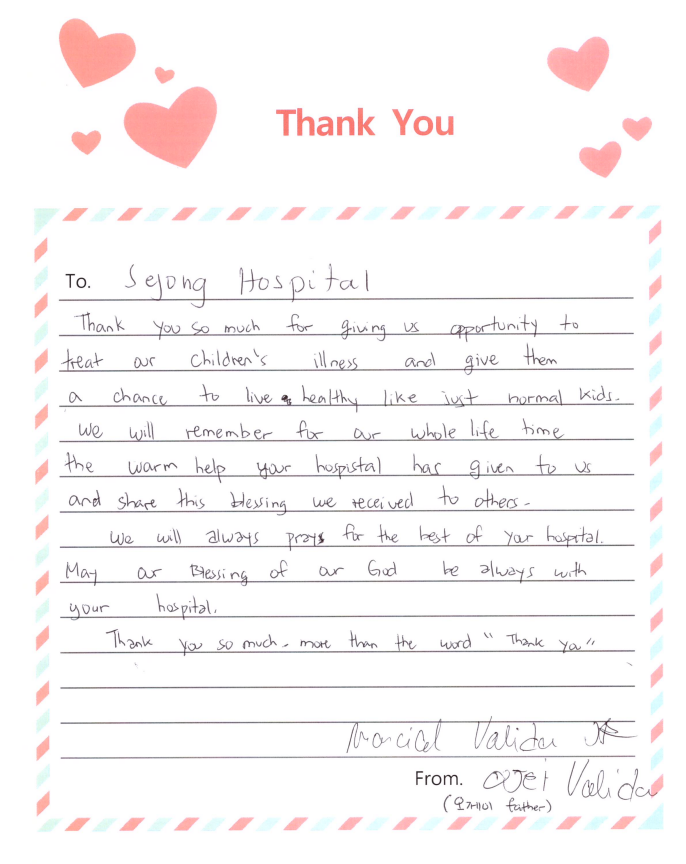 Thank You
To. Sejong Hospital
Thank you so much for giving us opportunity to
treat our children's illness and give them
a chance to live healthy like just normal kids.
We will remember for our whole life time
the warm help your hospistal has given to us
and share this blessing we received to others.
We will always prays for the best of your hospital.
May our Blessing of our God be always with
your hospital.
Thank you so much. more than the word "Thank you"
Valida
From. Valida
(오제이 father)